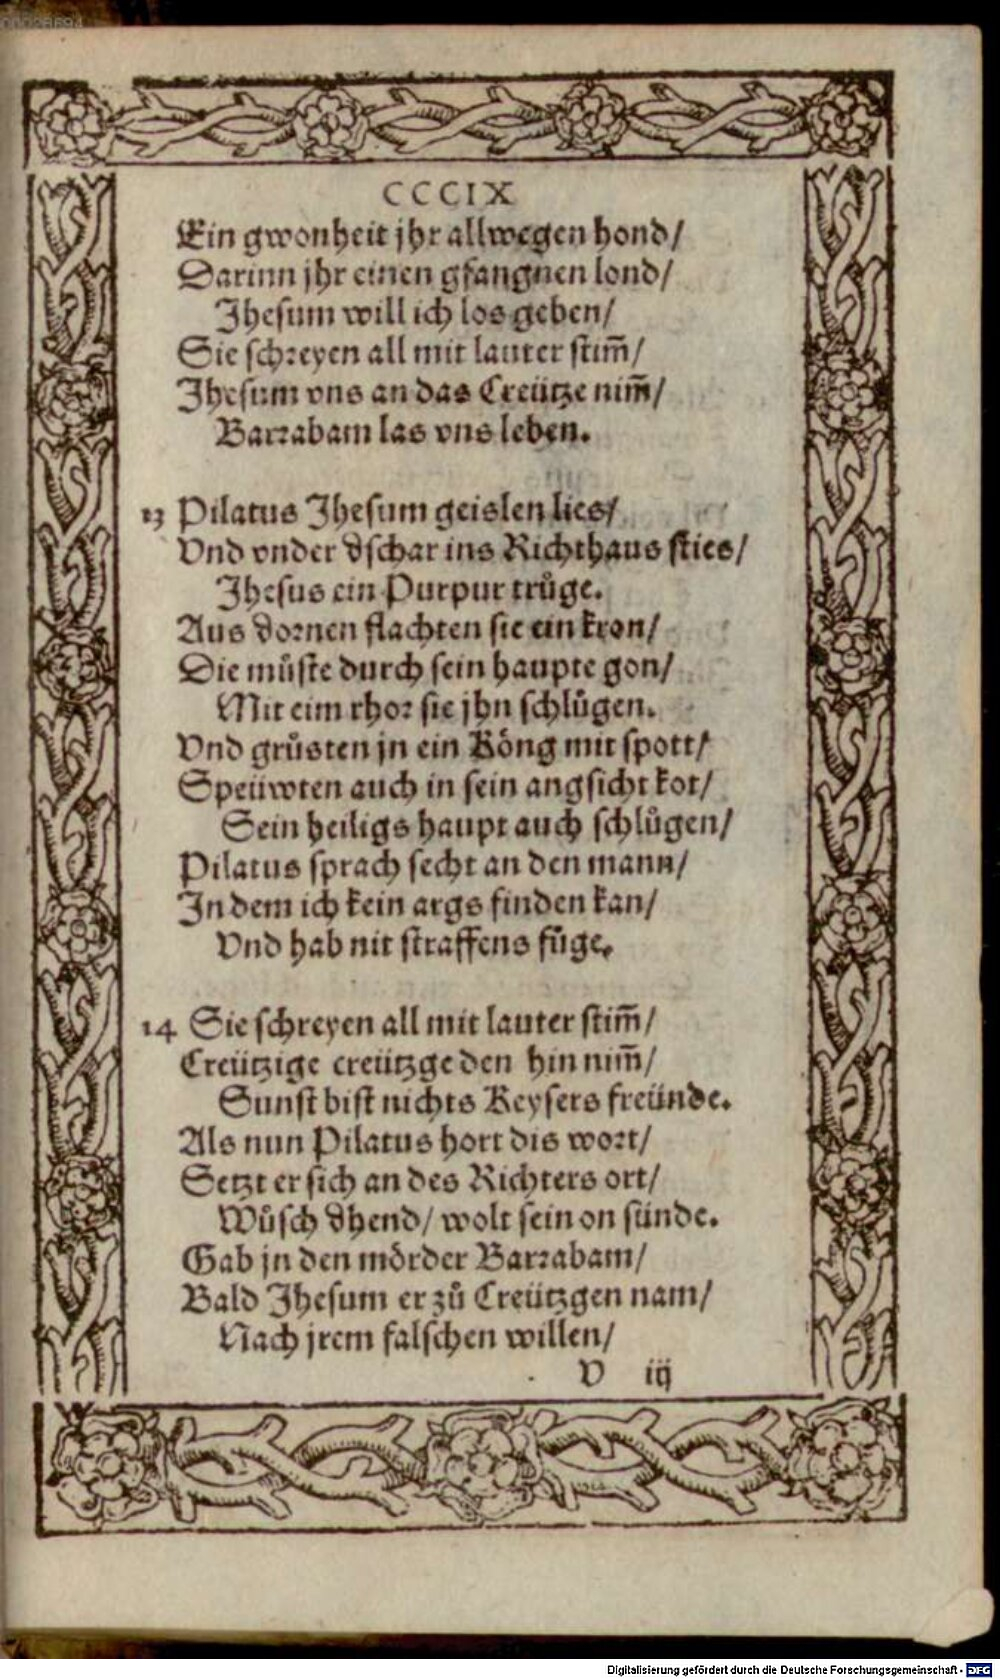 CCCIX
Ein gwonheit jhr allwegen hond/
Darinn jhr einen gfangnen lond/
Jhesum will ich los geben/
Sie schreyen all mit lauter stim̄/
Jhesum vns an das Creütze nim̄/
Barrabam las vns leben.
13 Pilatus Jhesum geislen lies/
Vnd vnder dschar ins Richthaus sties/
Jhesus ein Purpur trůge.
Aus dornen flachten sie ein kron/
Die můste durch sein haupte gon/
Mit eim rhor sie jhn schlůgen.
Vnd grůsten jn ein Köng mit spott/
Speüwten auch in sein angsicht kot/
Sein heiligs haupt auch schlůgen/
Pilatus sprach secht an den mann/
In dem ich kein args finden kan/
Vnd hab nit straffens fůge.
14 Sie schreyen all mit lauter stim̄/
Creützige creützge den hin nim̄/
Sunst bist nichts Keysers freünde.
Als nun Pilatus hort dis wort/
Setzt er sich an des Richters ort/
Wůsch dhend/ wolt sein on sünde.
Gab jn den mörder Barrabam/
Bald Jhesum er zů Creützgen nam/
Nach jrem falschen willen/
V iij
Digitalisierung gefördert durch die Deutsche Forschungsgemeinschaft - DFG